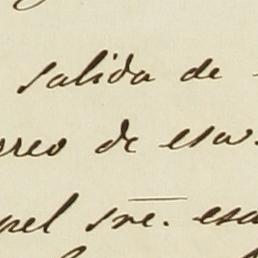 salida de
rreo de esa
pel sre. esa